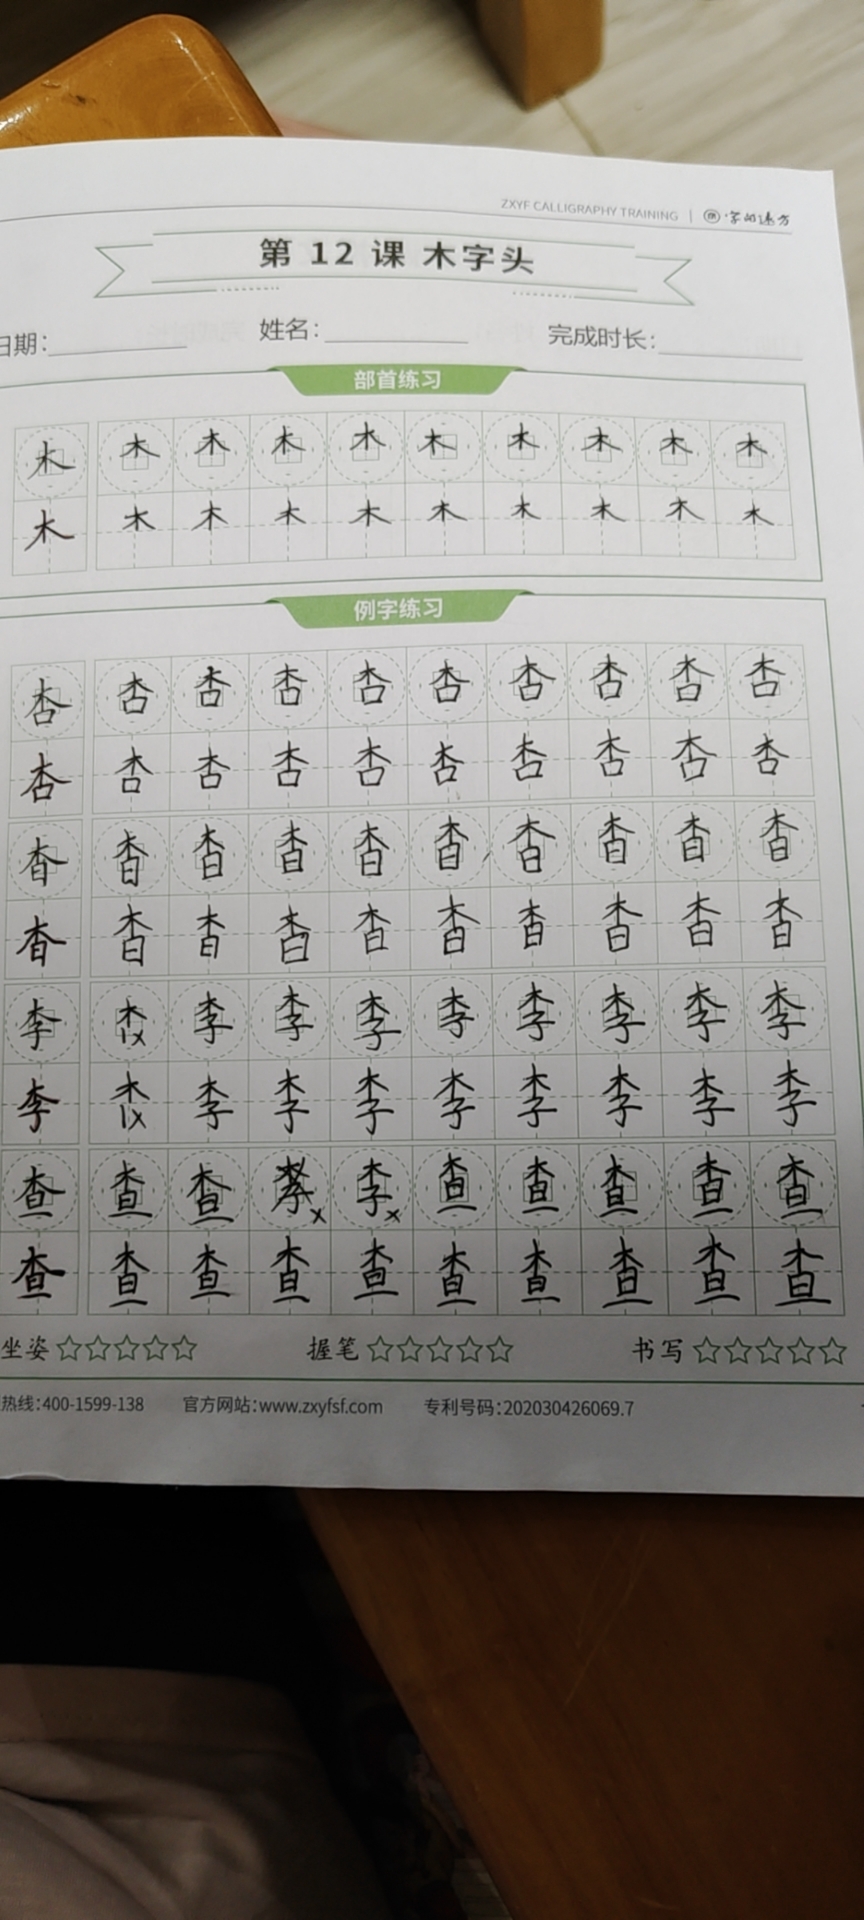 ZXYF CALLIGRAPHY TRAINING | 字如远方
第 12 课 木字头
日期: 姓名: 完成时长:
部首练习
木 木 木 木 木 木 木 木 木 木
木 木 木 木 木 木 木 木 木 木
例字练习
杏 杏 杏 杏 杏 杏 杏 杏 杏 杏
杏 杏 杏 杏 杏 杏 杏 杏 杏 杏
杳 杳 杳 杳 杳 杳 杳 杳 杳 杳
杳 杳 杳 杳 杳 杳 杳 杳 杳 杳
李 李 李 李 李 李 李 李 李
李 李 李 李 李 李 李 李 李
查 查 查 李 x 查 查 查 查 查
查 查 查 查 查 查 查 查 查 查
坐姿☆☆☆☆☆ 握笔☆☆☆☆☆ 书写☆☆☆☆☆
热线:400-1599-138 官方网站:www.zxyfsf.com 专利号码:202030426069.7